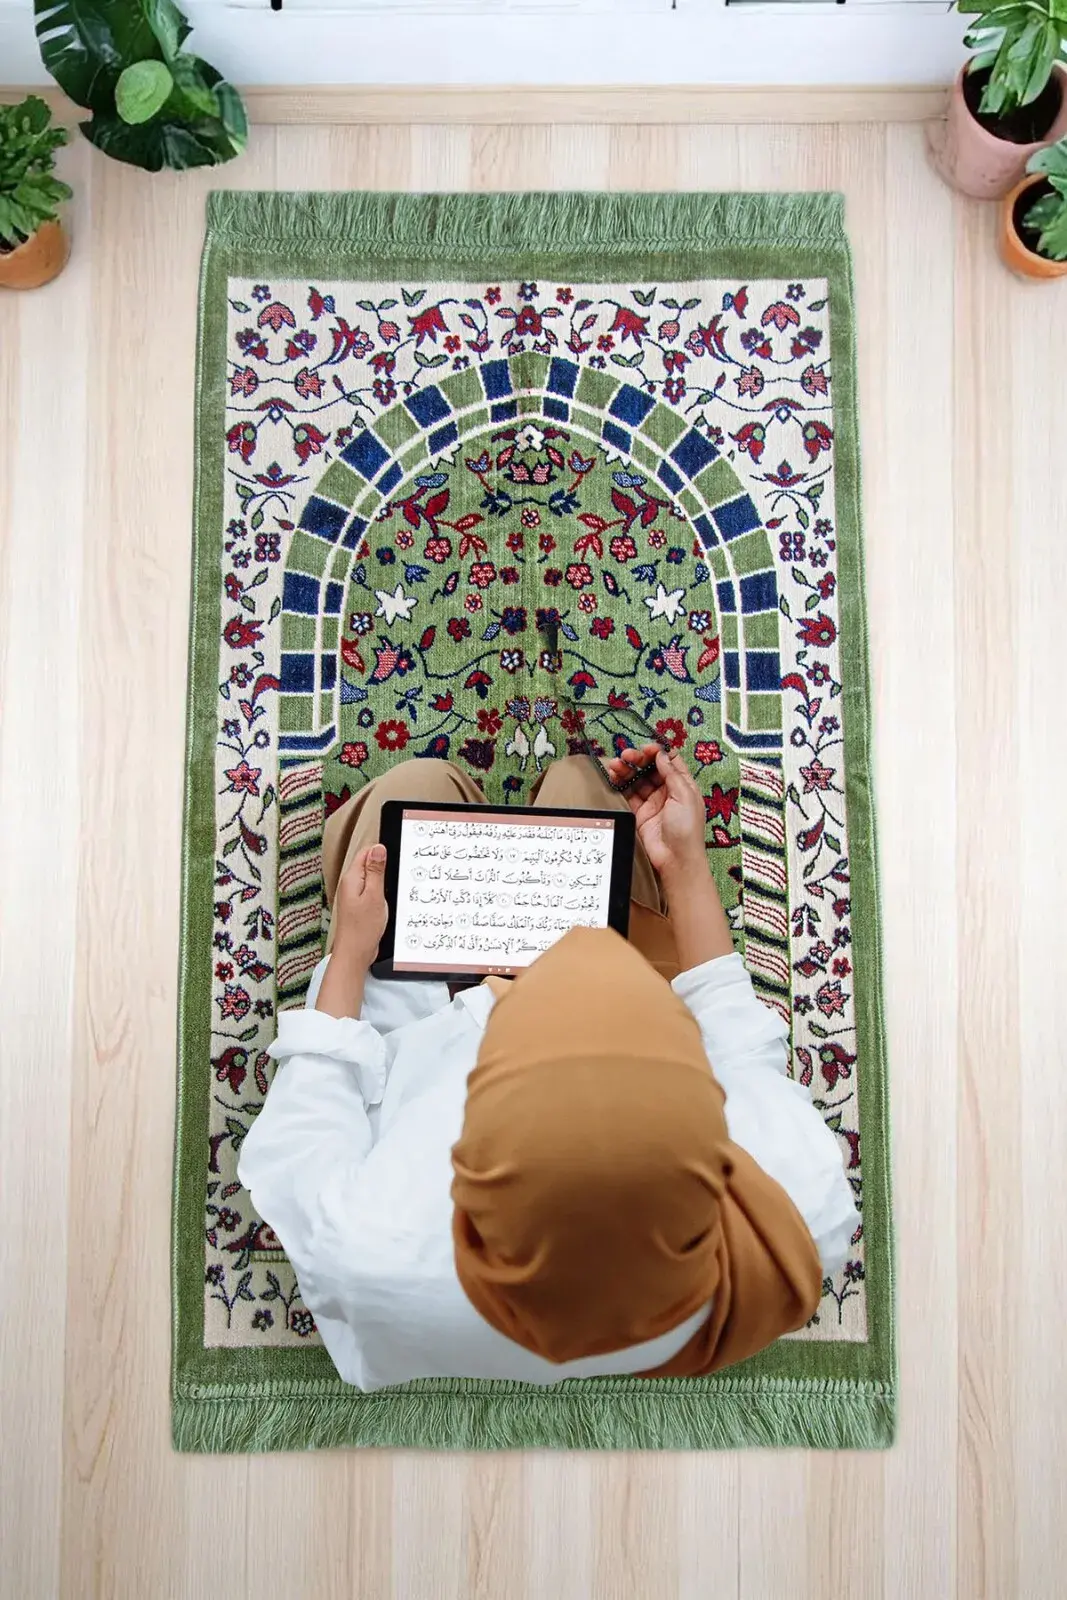 ١٥ وَأَمَّا إِذَا مَا ٱبْتَلَىٰهُ فَقَدَرَ عَلَيْهِ رِزْقَهُۥ فَيَقُولُ رَبِّىٓ أَهَٰنَنِ ١٦
كَلَّا بَل لَّا تُكْرِمُونَ ٱلْيَتِيمَ ١٧ وَلَا تَحَٰٓضُّونَ عَلَىٰ طَعَامِ
ٱلْمِسْكِينِ ١٨ وَتَأْكُلُونَ ٱلتُّرَاثَ أَكْلًا لَّمًّا ١٩
وَتُحِبُّونَ ٱلْمَالَ حُبًّا جَمًّا ٢٠ كَلَّآ إِذَا دُكَّتِ ٱلْأَرْضُ دَكًّا
دَكًّا وَجَآءَ رَبُّكَ وَٱلْمَلَكُ صَفًّا صَفًّا ٢٢ وَجِا۟ىٓءَ يَوْمَئِذٍۭ
يَتَذَكَّرُ ٱلْإِنسَٰنُ وَأَنَّىٰ لَهُ ٱلذِّكْرَىٰ ٢٣